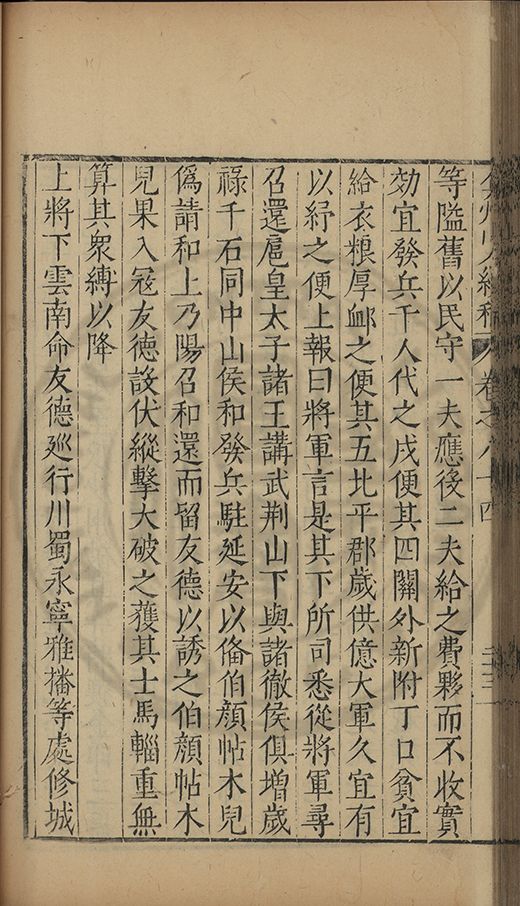 弇州史料續稿 卷之八十四 二十三
等隘舊以民守一夫應後二夫給之費夥而不收實
効宜發兵千人代之戍便其四關外新附丁口貧宜
給衣粮厚卹之便其五北平郡歲供億大軍久宜有
以紓之便上報曰將軍言是其下所司悉從將軍尋
召還扈皇太子諸王講武荆山下與諸徹侯俱增歲
祿千石同中山侯和發兵駐延安以俻伯顏帖木兒
僞請和上乃陽召和還而留友德以誘之伯顏帖木
兒果入冦友德設伏縱擊大破之獲其士馬輜重無
算其衆縛以降
上將下雲南命友德廵行川蜀永寧雅播等處修城